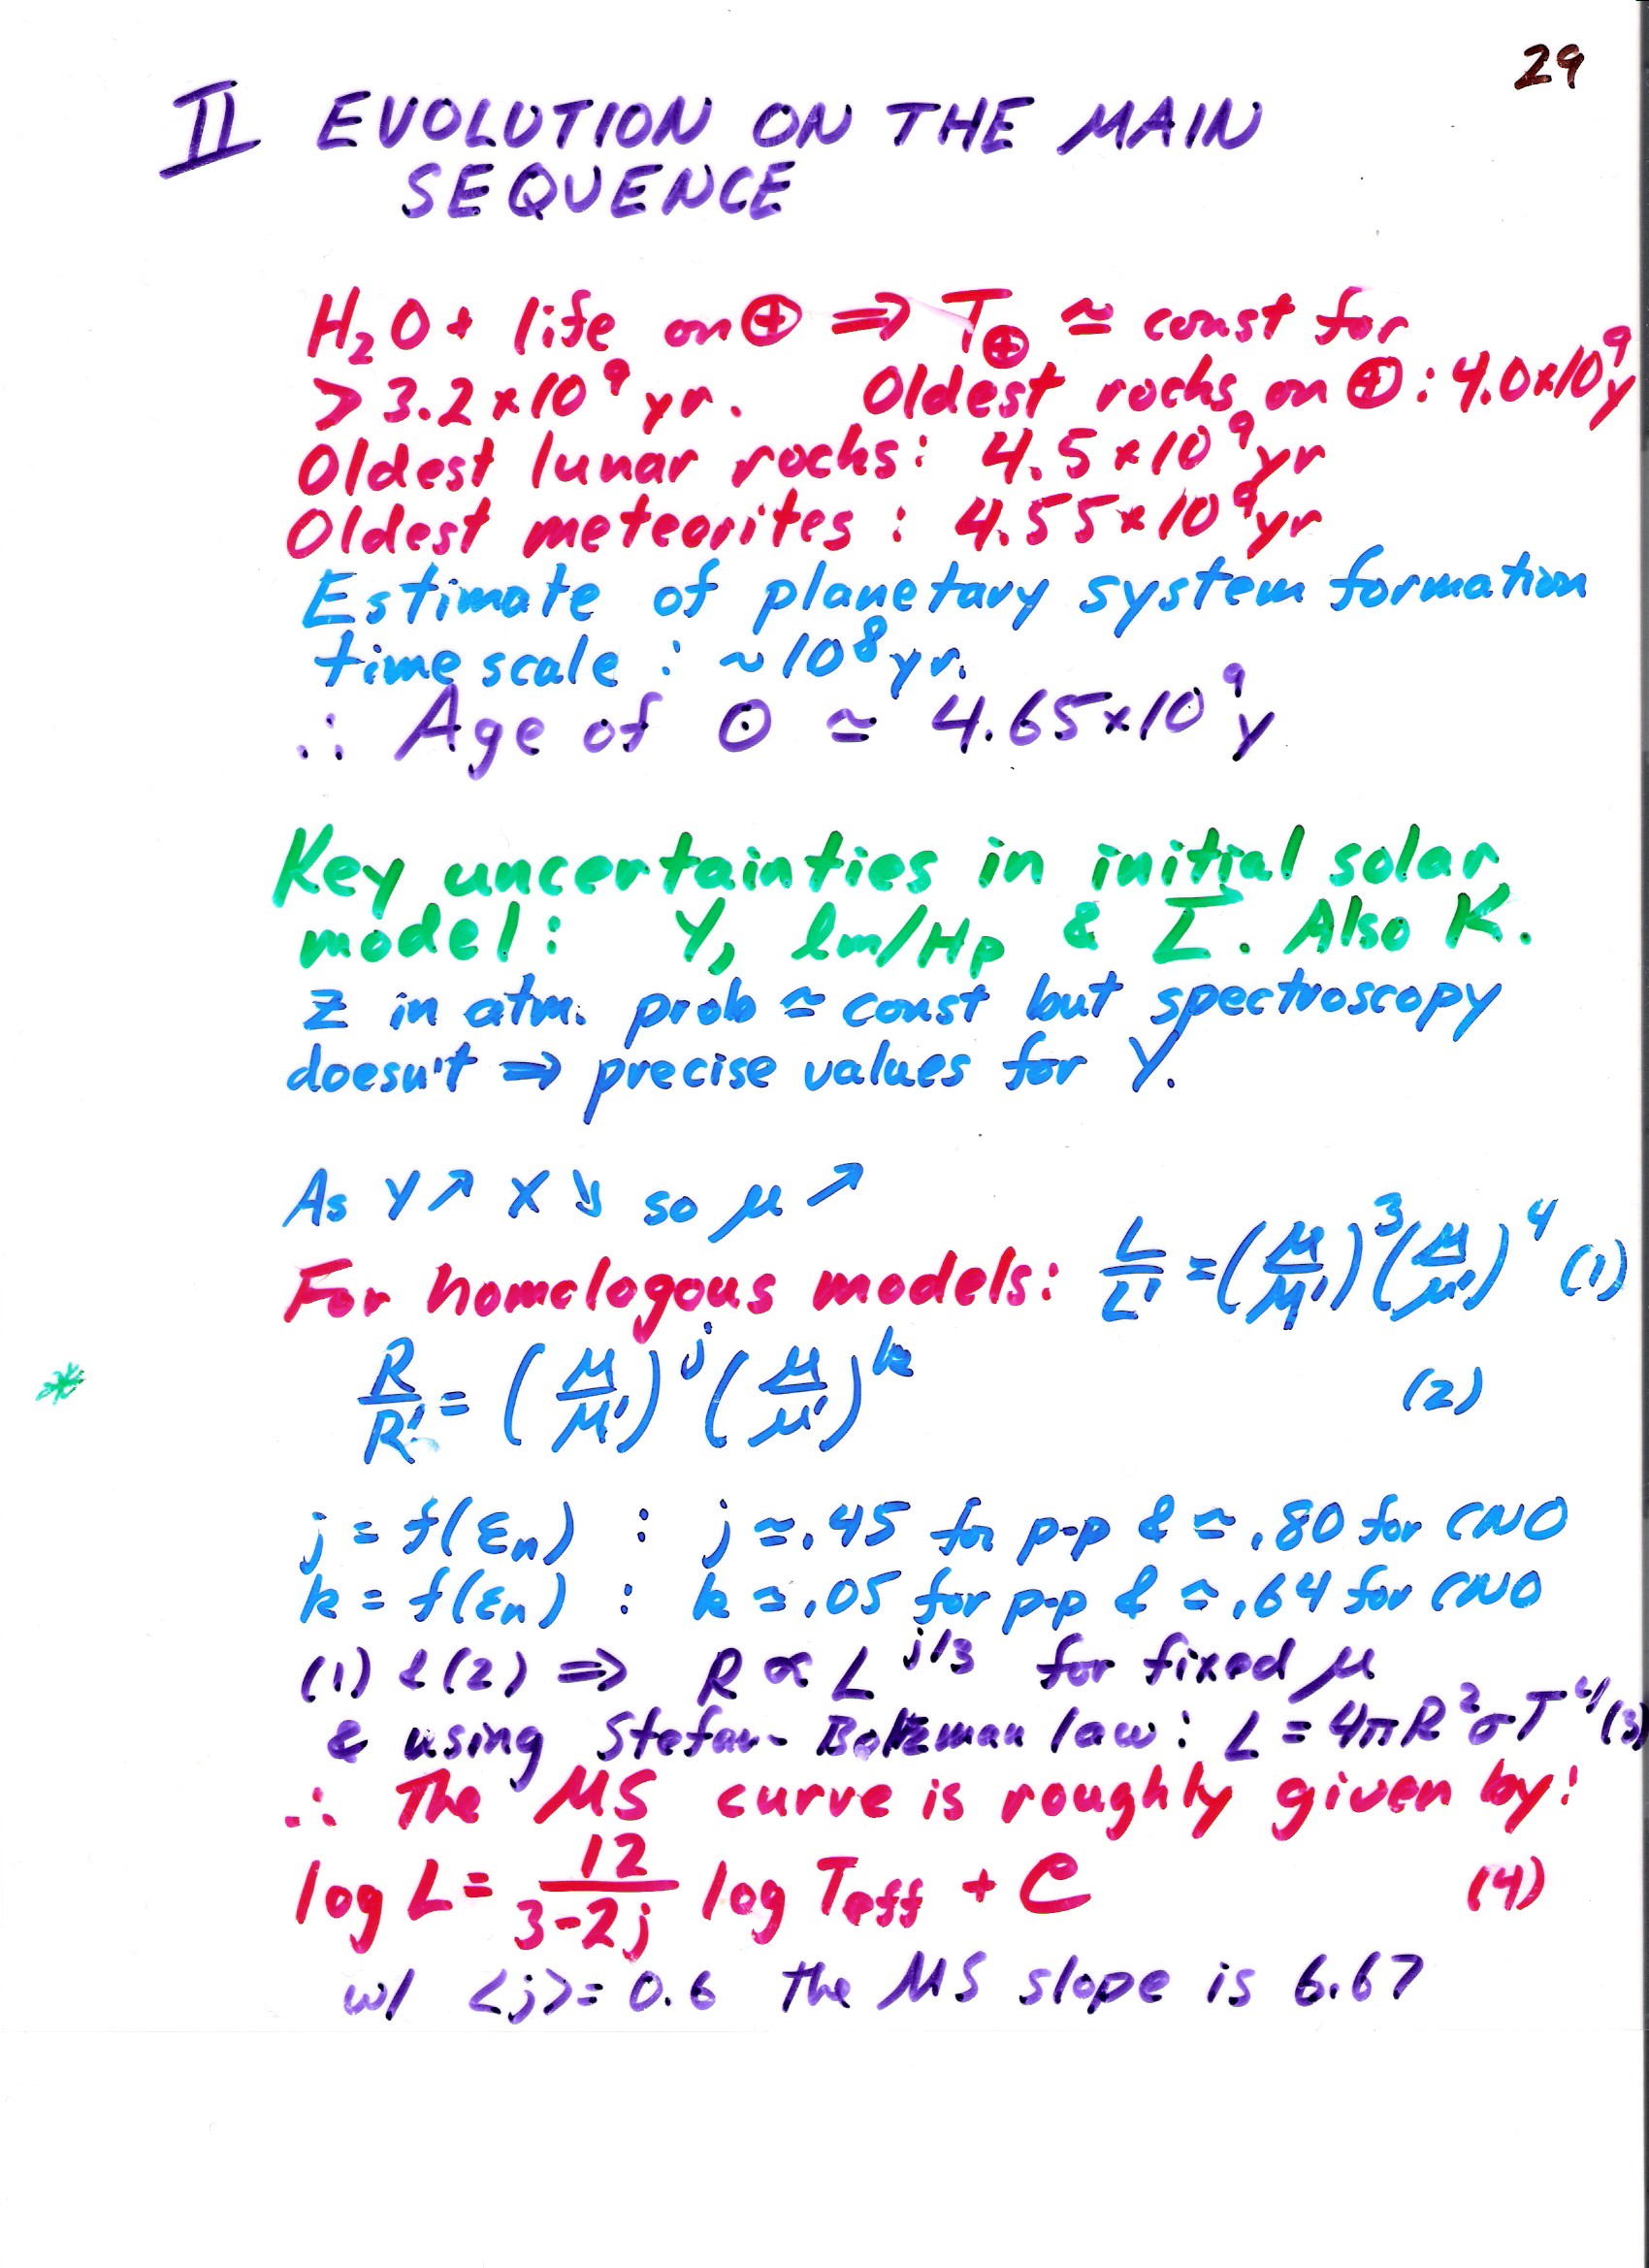 29
II EVOLUTION ON THE MAIN
SEQUENCE
H₂O + life on ⊕ ⇒ T⊕ ≃ const for
> 3.2×10⁹ yr. Oldest rocks on ⊕: 4.0×10⁹y
Oldest lunar rocks: 4.5×10⁹yr
Oldest meteorites: 4.55×10⁹yr
Estimate of planetary system formation
time scale: ~10⁸yr.
∴ Age of ⊙ ≃ 4.65×10⁹y
Key uncertainties in initial solar
model: Y, lm/Hp & Z. Also K.
Z in atm. prob ≃ const but spectroscopy
doesn't ⇒ precise values for Y.
As Y↗ X↘ so μ↗
For homologous models: L/L' = (M/M')³(μ/μ')⁴ (1)
* R/R' = (M/M')ʲ (μ/μ')ᵏ (2)
j = f(εn) : j ≃ .45 for p-p & ≃ .80 for CNO
k = f(εn) : k ≃ .05 for p-p & ≃ .64 for CNO
(1) & (2) ⇒ R ∝ L^j/3 for fixed μ
& using Stefan-Boltzman law: L = 4πR²σT⁴ (3)
∴ The MS curve is roughly given by:
log L = 12/(3-2j) log Teff + C (4)
w/ <j> = 0.6 the MS slope is 6.67